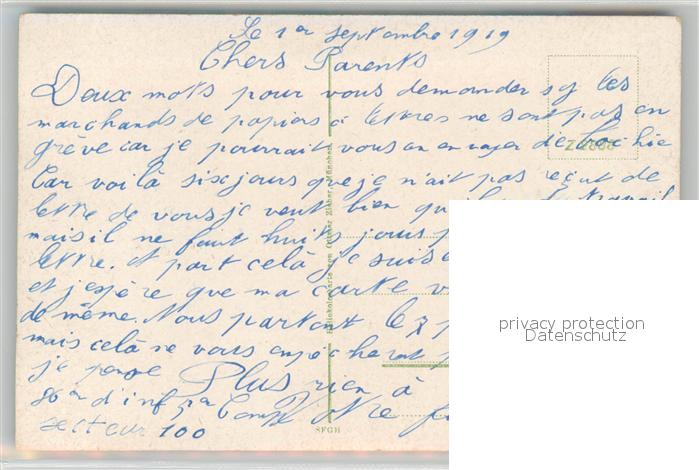 Le 1er septembre 1919
Chers Parents
Deux mots pour vous demander sy les
marchands de papiers à lettres ne sont pas en
grève car je pourrait vous en envoyer d'
Car voilà six jours que je n'ait pas reçut de
lettre de vous je veut bien travail
mais il ne faut huits jours
lettre. et part celà je suis
et j'espère que ma carte
de même. Nous partont le 7
mais celà ne vous empêcherat
je pense Plus rien à
d'inf Votre
secteur 100
SFGH
privacy protection
Datenschutz